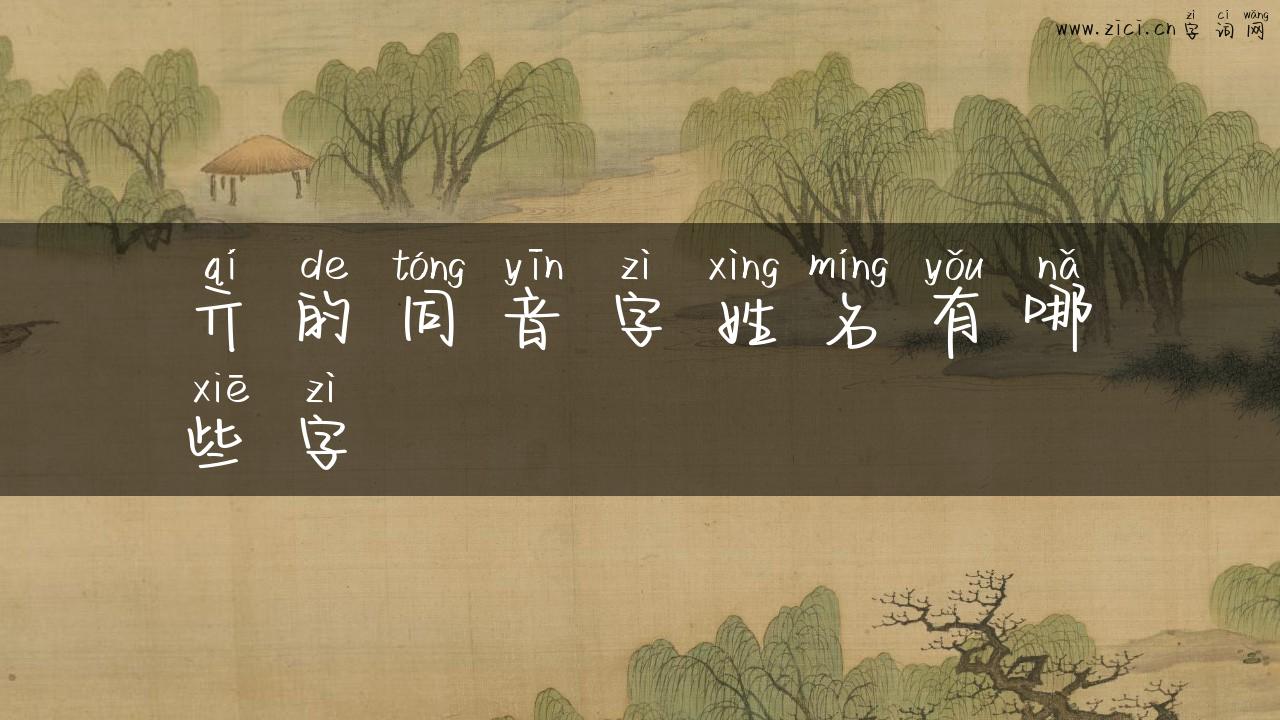 zì cí wǎng
www.zici.cn 字 词 网
qí de tóng yīn zì xìng míng yǒu nǎ
亓 的 同 音 字 姓 名 有 哪
xiē zì
些 字